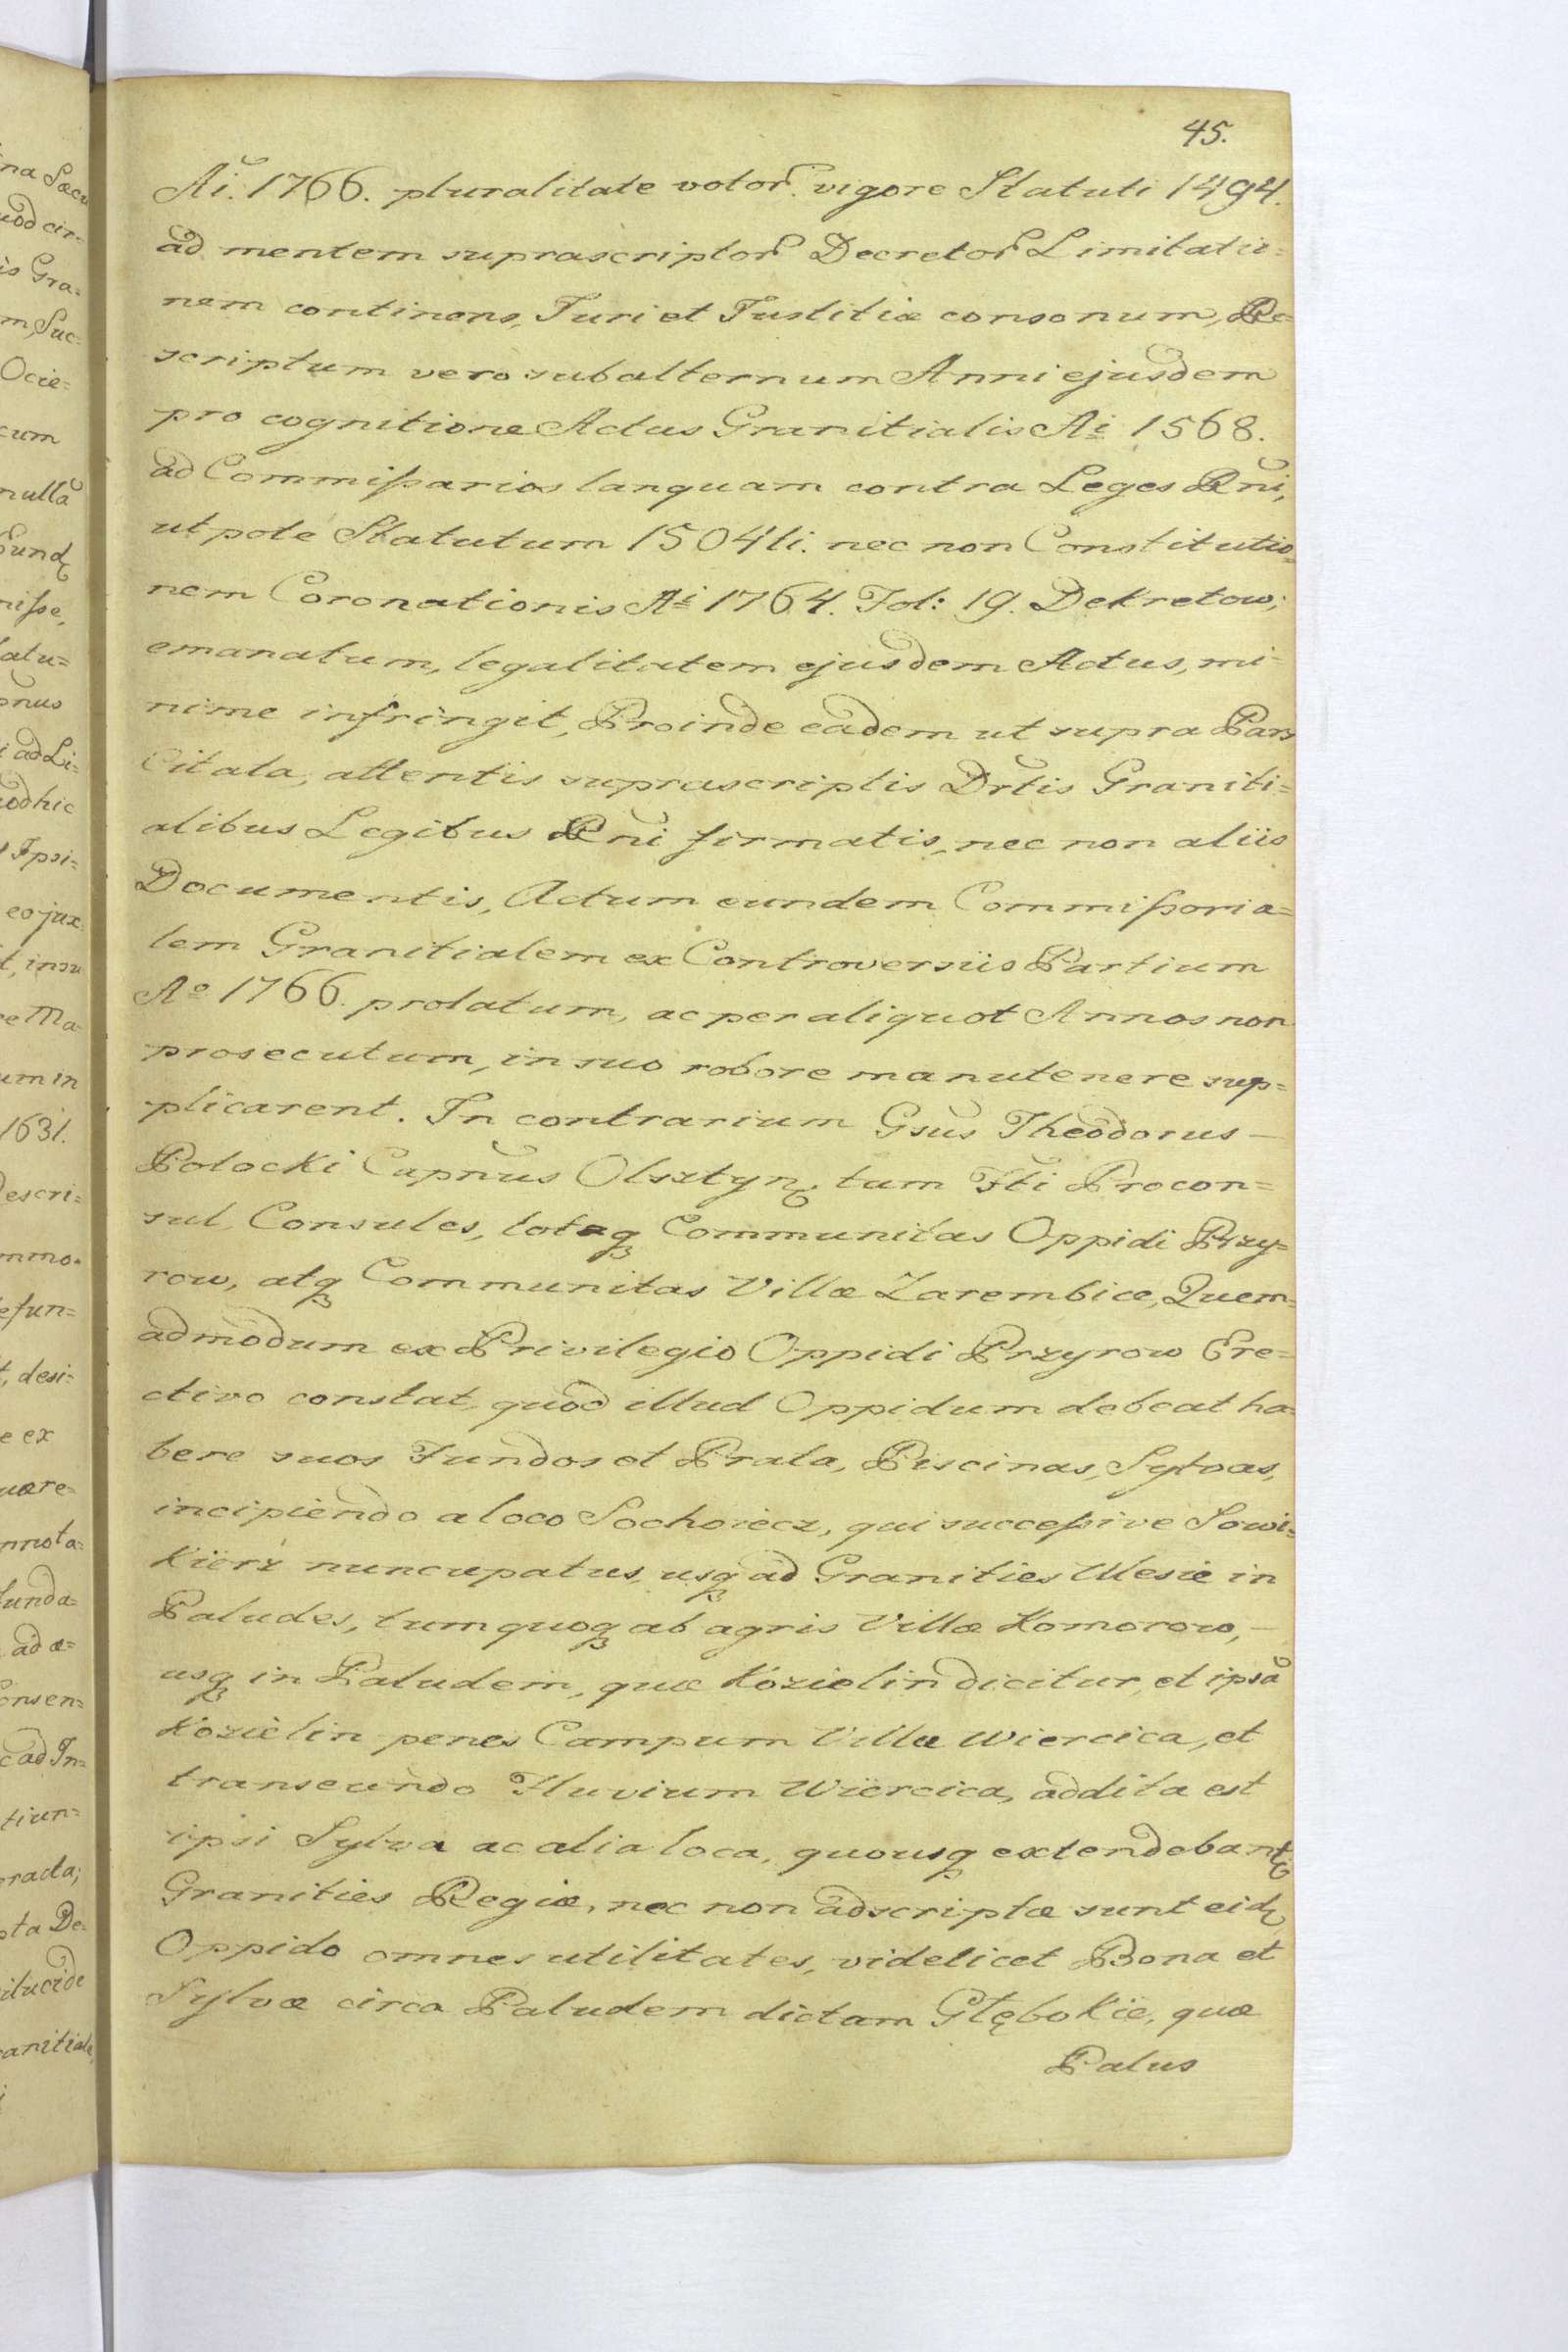 45.
Ai. 1766. pluralitate votor. vigore Statuti 1494.
ad mentem suprascriptor Decretor Limitatio=
nem continens, Juri et Justitiæ consonum, Re=
scriptum vero subalternum Anni ejusdem
pro cognitione Actus Granitialis Ai 1568.
ad Commissarios tanquam contra Leges Rni,
ut pote Statutum 1504ti. nec non Constitutio=
nem Coronationis Ai 1764. Fol: 19. Dekretow,
emanatum, legalitatem ejusdem Actus, mi=
nime infringit, Proinde eadem ut supra Pars
Citata, attentis suprascriptis Drtis Graniti=
alibus Legibus Rni firmatis, nec non aliis
Documentis, Actum eundem Commissoria=
lem Granitialem ex Controversiis Partium
Ao 1766. prolatum, ac per aliquot Annos non
prosecutum, in suo robore manutenere sup=
plicarent. In contrarium Gsus Theodorus
Potocki Capnus Olsztyn. tum Fti Procon=
sul, Consules, totaq Communitas Oppidi Przy=
row, atq Communitas Villæ Zarembice, Quem=
admodum ex Privilegio Oppidi Przyrow Ere=
ctivo constat, quod illud Oppidum debeat ha=
bere suos Fundos et Prata, Piscinas, Sylvas,
incipiendo a loco Sochoiecz, qui successive Sowi=
Kierz nuncupatus, usq ad Granities Ulesie in
Paludes, tum quoq ab agris Villæ Komorow,
usq in Paludem, quæ Kozielin dicitur, et ipsã
Kozielin penes Campum Villæ Wiercica, et
transeundo Fluvium Wiercica, addita est
ipsi Sylva ac alia loca, quousq extendebant
Granities Regiæ, nec non adscriptæ sunt eid
Oppido omnes utilitates, videlicet Bona et
Sylvæ circa Paludem dictam Głęboкie, quæ
Palus